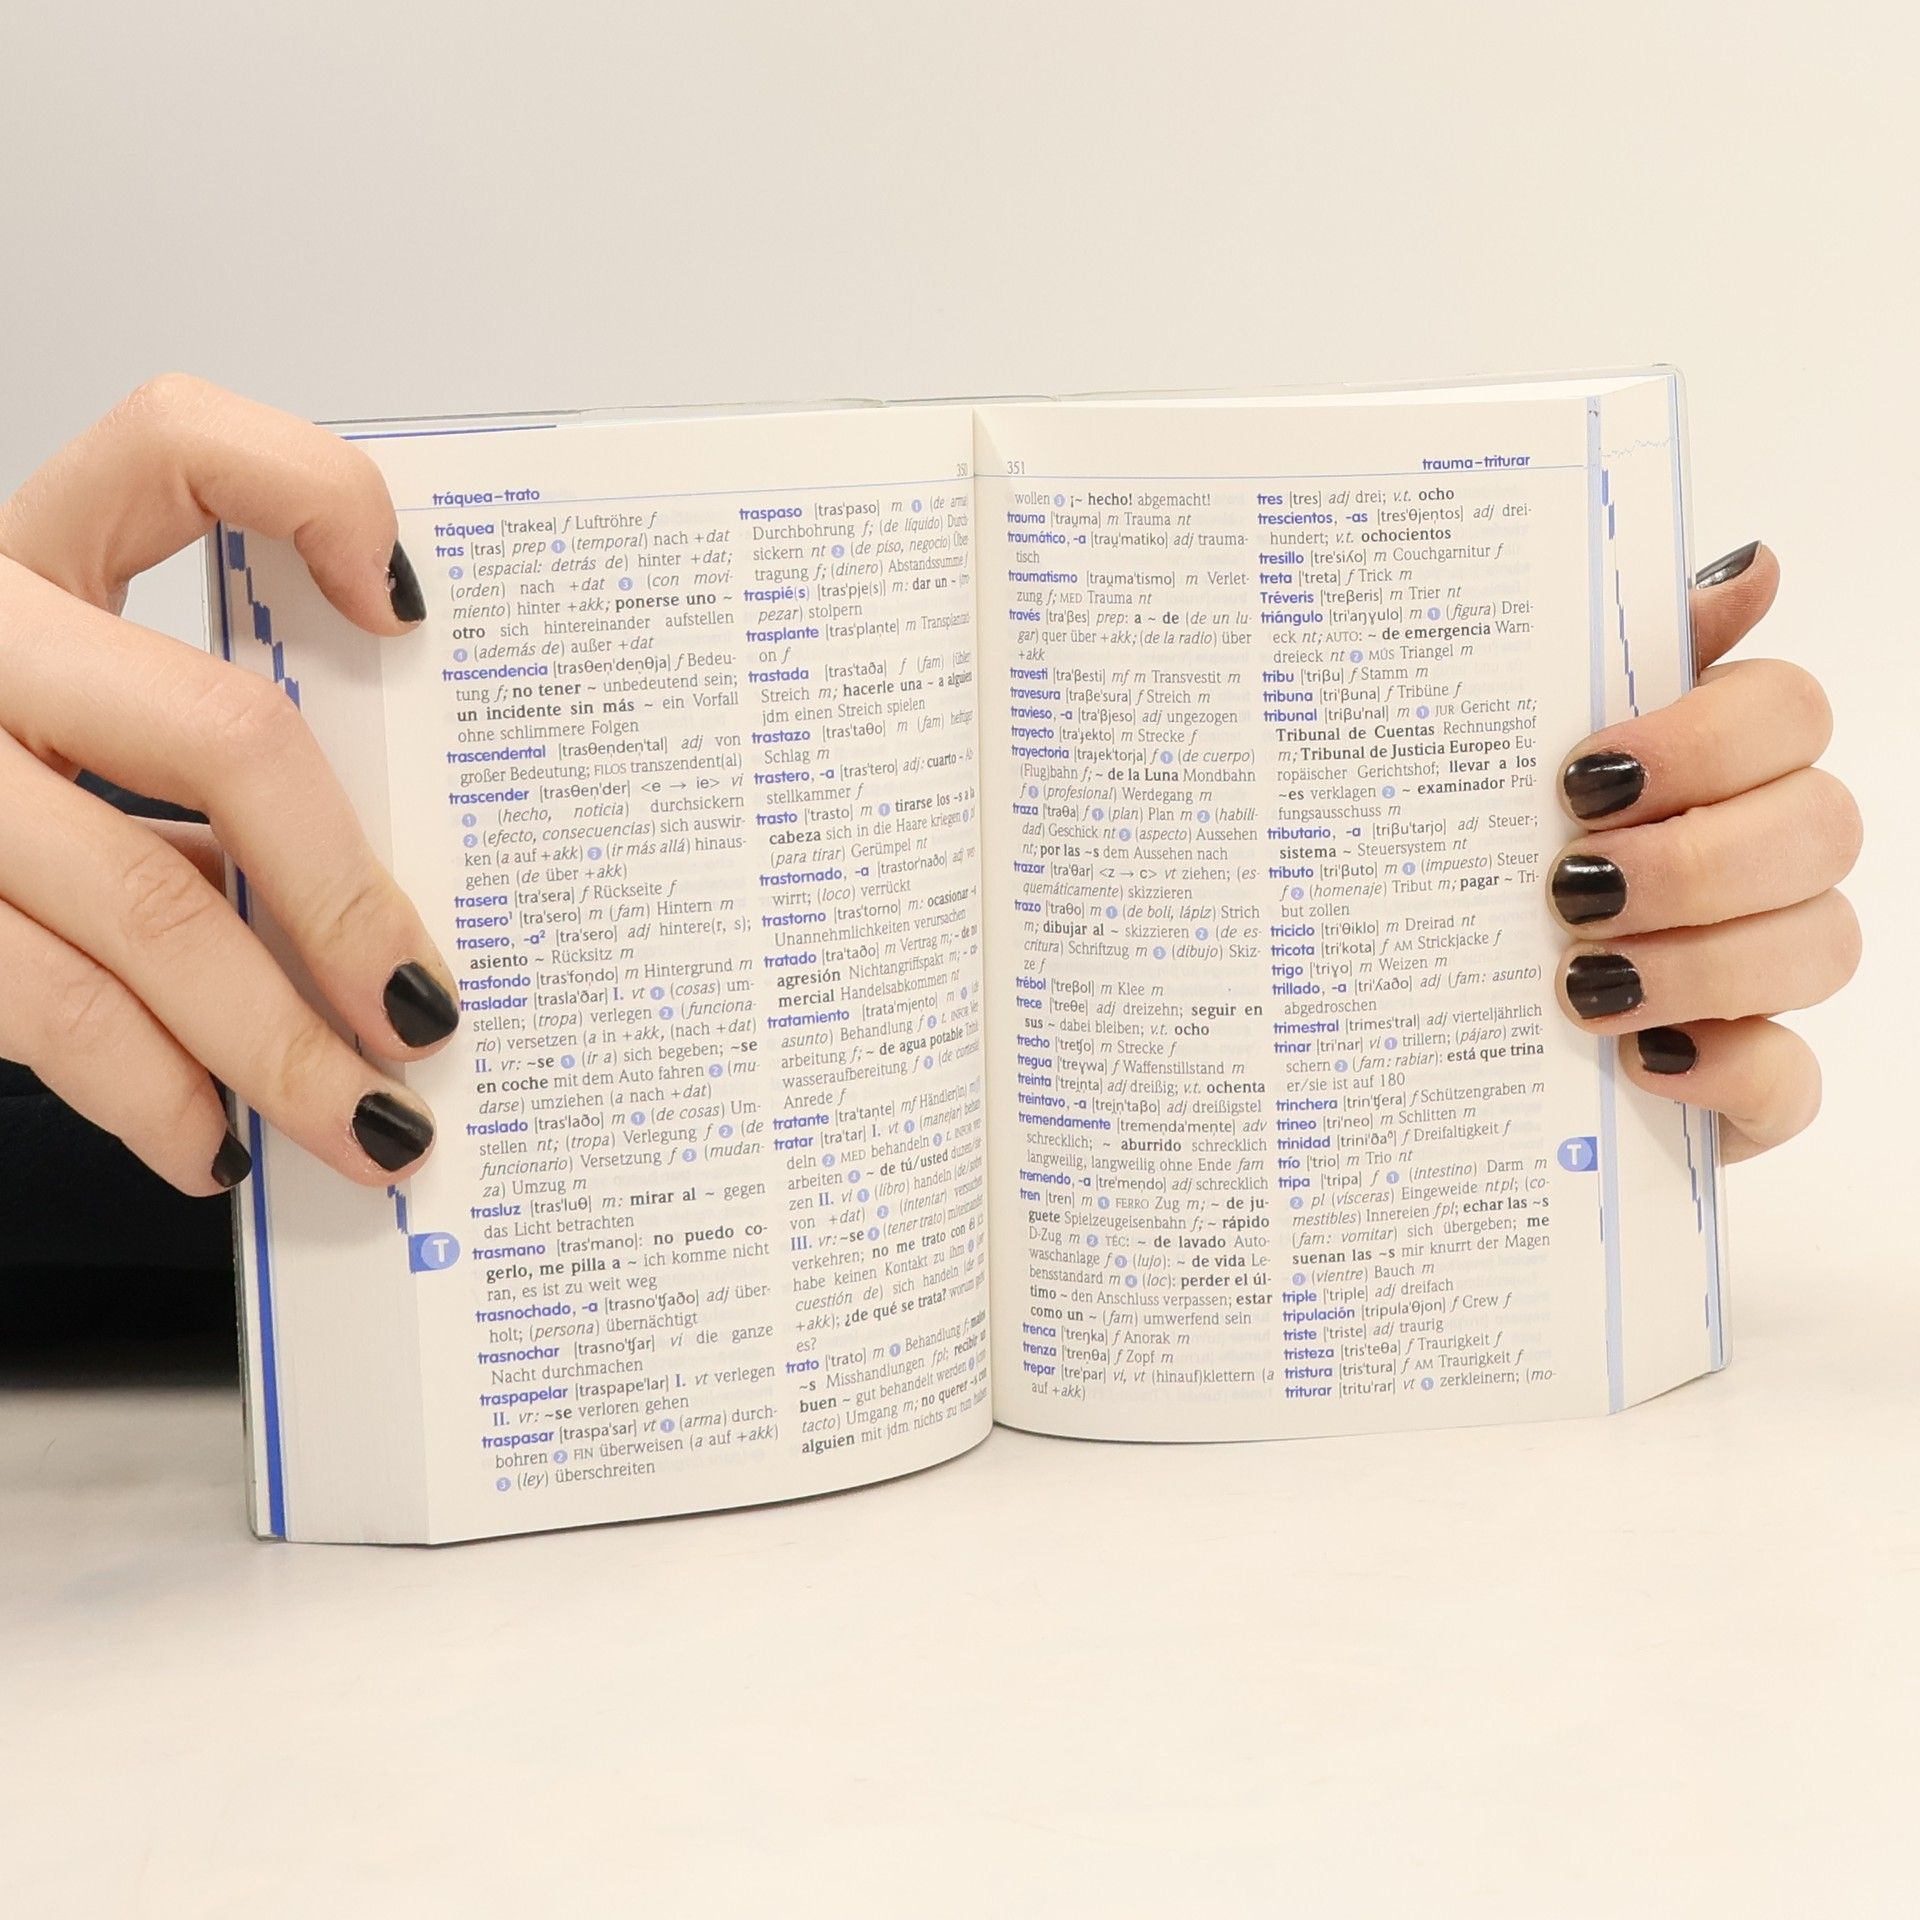 tráquea–trato
350
tráquea ['trakea] f Luftröhre f
tras [tras] prep 1 (temporal) nach +dat
2 (espacial: detrás de) hinter +dat;
(orden) nach +dat 3 (con movi-
miento) hinter +akk; ponerse uno ~
otro sich hintereinander aufstellen
4 (además de) außer +dat
trascendencia [trasθen̩'den̩θja] f Bedeu-
tung f; no tener ~ unbedeutend sein;
un incidente sin más ~ ein Vorfall
ohne schlimmere Folgen
trascendental [trasθen̩den̩'tal] adj von
großer Bedeutung; FILOS transzendent(al)
trascender [trasθen̩'der] <e → ie> vi
1 (hecho, noticia) durchsickern
2 (efecto, consecuencias) sich auswir-
ken (a auf +akk) 3 (ir más allá) hinaus-
gehen (de über +akk)
trasera [tra'sera] f Rückseite f
trasero¹ [tra'sero] m (fam) Hintern m
trasero, -a² [tra'sero] adj hintere(r, s);
asiento ~ Rücksitz m
trasfondo [tras'fon̩do] m Hintergrund m
trasladar [trasla'ðar] I. vt 1 (cosas) um-
stellen; (tropa) verlegen 2 (funciona-
rio) versetzen (a in +akk, (nach +dat)
II. vr: ~se 1 (ir a) sich begeben; ~se
en coche mit dem Auto fahren 2 (mu-
darse) umziehen (a nach +dat)
traslado [tras'laðo] m 1 (de cosas) Um-
stellen nt; (tropa) Verlegung f 2 (de
funcionario) Versetzung f 3 (mudan-
za) Umzug m
trasluz [tras'luθ] m: mirar al ~ gegen
das Licht betrachten
trasmano [tras'mano]: no puedo co-
gerlo, me pilla a ~ ich komme nicht
ran, es ist zu weit weg
trasnochado, -a [trasno'ʧaðo] adj über-
holt; (persona) übernächtigt
trasnochar [trasno'ʧar] vi die ganze
Nacht durchmachen
traspapelar [traspape'lar] I. vt verlegen
II. vr: ~se verloren gehen
traspasar [traspa'sar] vt 1 (arma) durch-
bohren 2 FIN überweisen (a auf +akk)
3 (ley) überschreiten
traspaso [tras'paso] m 1 (de arma)
Durchbohrung f; (de líquido) Durch-
sickern nt 2 (de piso, negocio) Über-
tragung f; (dinero) Abstandssumme f
traspié(s) [tras'pje(s)] m: dar un ~ (tro-
pezar) stolpern
trasplante [tras'plan̩te] m Transplantati-
on f
trastada [tras'taða] f (fam) (übler)
Streich m; hacerle una ~ a alguien
jdm einen Streich spielen
trastazo [tras'taθo] m (fam) heftiger
Schlag m
trastero, -a [tras'tero] adj: cuarto ~ Ab-
stellkammer f
trasto ['trasto] m 1 tirarse los ~s a la
cabeza sich in die Haare kriegen 2 pl
(para tirar) Gerümpel nt
trastornado, -a [trastor'naðo] adj ver-
wirrt; (loco) verrückt
trastorno [tras'torno] m: ocasionar ~s
Unannehmlichkeiten verursachen
tratado [tra'taðo] m Vertrag m; ~ de no
agresión Nichtangriffspakt m; ~ co-
mercial Handelsabkommen nt
tratamiento [trata'mjen̩to] m 1 (de
asunto) Behandlung f 2 t. INFOR Ver-
arbeitung f; ~ de agua potable Trink-
wasseraufbereitung f 3 (de cortesía)
Anrede f
tratante [tra'tan̩te] mf Händler(in) m(f)
tratar [tra'tar] I. vt 1 (manejar) behan-
deln 2 MED behandeln 3 t. INFOR ver-
arbeiten 4 ~ de tú/usted duzen/sie-
zen II. vi 1 (libro) handeln (de/sobre
von +dat) 2 (intentar) versuchen
III. vr: ~se 1 (tener trato) miteinander
verkehren; no me trato con él ich
habe keinen Kontakt zu ihm 2 (ser
cuestión de) sich handeln (de um
+akk); ¿de qué se trata? worum geht
es?
trato ['trato] m 1 Behandlung f; malos
~s Misshandlungen fpl; recibir un
buen ~ gut behandelt werden 2 (con-
tacto) Umgang m; no querer ~s con
alguien mit jdm nichts zu tun haben
T
351
trauma–triturar
wollen 3 ¡~ hecho! abgemacht!
trauma ['trau̯ma] m Trauma nt
traumático, -a [trau̯'matiko] adj trauma-
tisch
traumatismo [trau̯ma'tismo] m Verlet-
zung f; MED Trauma nt
través [tra'βes] prep: a ~ de (de un lu-
gar) quer über +akk; (de la radio) über
+akk
travesti [tra'βesti] mf m Transvestit m
travesura [traβe'sura] f Streich m
travieso, -a [tra'βjeso] adj ungezogen
trayecto [tra'ɟekto] m Strecke f
trayectoria [traɟek'torja] f 1 (de cuerpo)
(Flug)bahn f; ~ de la Luna Mondbahn
f 2 (profesional) Werdegang m
traza ['traθa] f 1 (plan) Plan m 2 (habili-
dad) Geschick nt 3 (aspecto) Aussehen
nt; por las ~s dem Aussehen nach
trazar [tra'θar] <z → c> vt ziehen; (es-
quemáticamente) skizzieren
trazo ['traθo] m 1 (de boli, lápiz) Strich
m; dibujar al ~ skizzieren 2 (de es-
critura) Schriftzug m 3 (dibujo) Skiz-
ze f
trébol ['treβol] m Klee m
trece ['treθe] adj dreizehn; seguir en
sus ~ dabei bleiben; v.t. ocho
trecho ['treʧo] m Strecke f
tregua ['treɣwa] f Waffenstillstand m
treinta ['trei̯n̩ta] adj dreißig; v.t. ochenta
treintavo, -a [trei̯n̩'taβo] adj dreißigstel
tremendamente [tremen̩da'men̩te] adv
schrecklich; ~ aburrido schrecklich
langweilig, langweilig ohne Ende fam
tremendo, -a [tre'men̩do] adj schrecklich
tren [tren] m 1 FERRO Zug m; ~ de ju-
guete Spielzeugeisenbahn f; ~ rápido
D-Zug m 2 TÉC: ~ de lavado Auto-
waschanlage f 3 (lujo): ~ de vida Le-
bensstandard m 4 (loc): perder el úl-
timo ~ den Anschluss verpassen; estar
como un ~ (fam) umwerfend sein
trenca ['treŋka] f Anorak m
trenza ['tren̩θa] f Zopf m
trepar [tre'par] vi, vt (hinauf)klettern (a
auf +akk)
tres [tres] adj drei; v.t. ocho
trescientos, -as [tres'θjen̩tos] adj drei-
hundert; v.t. ochocientos
tresillo [tre'siʎo] m Couchgarnitur f
treta ['treta] f Trick m
Tréveris ['treβeris] m Trier nt
triángulo [tri'aŋɣulo] m 1 (figura) Drei-
eck nt; AUTO: ~ de emergencia Warn-
dreieck nt 2 MÚS Triangel m
tribu ['triβu] f Stamm m
tribuna [tri'βuna] f Tribüne f
tribunal [triβu'nal] m 1 JUR Gericht nt;
Tribunal de Cuentas Rechnungshof
m; Tribunal de Justicia Europeo Eu-
ropäischer Gerichtshof; llevar a los
~es verklagen 2 ~ examinador Prü-
fungsausschuss m
tributario, -a [triβu'tarjo] adj Steuer-;
sistema ~ Steuersystem nt
tributo [tri'βuto] m 1 (impuesto) Steuer
f 2 (homenaje) Tribut m; pagar ~ Tri-
but zollen
triciclo [tri'θiklo] m Dreirad nt
tricota [tri'kota] f AM Strickjacke f
trigo ['triɣo] m Weizen m
trillado, -a [tri'ʎaðo] adj (fam: asunto)
abgedroschen
trimestral [trimes'tral] adj vierteljährlich
trinar [tri'nar] vi 1 trillern; (pájaro) zwit-
schern 2 (fam: rabiar): está que trina
er/sie ist auf 180
trinchera [trin'ʧera] f Schützengraben m
trineo [tri'neo] m Schlitten m
trinidad [trini'ðaᵟ] f Dreifaltigkeit f
trío ['trio] m Trio nt
tripa ['tripa] f 1 (intestino) Darm m
2 pl (vísceras) Eingeweide ntpl; (co-
mestibles) Innereien fpl; echar las ~s
(fam: vomitar) sich übergeben; me
suenan las ~s mir knurrt der Magen
3 (vientre) Bauch m
triple ['triple] adj dreifach
tripulación [tripula'θjon] f Crew f
triste ['triste] adj traurig
tristeza [tris'teθa] f Traurigkeit f
tristura [tris'tura] f AM Traurigkeit f
triturar [tritu'rar] vt 1 zerkleinern; (mo-
T